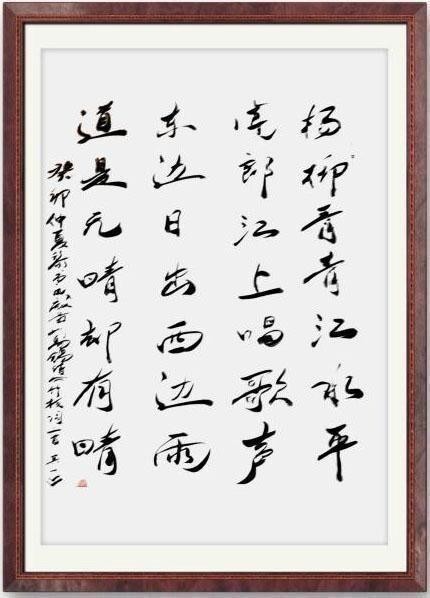 杨柳青青江水平
闻郎江上唱歌声
东边日出西边雨
道是无晴却有晴
癸卯仲夏 刘禹锡 竹枝词一首